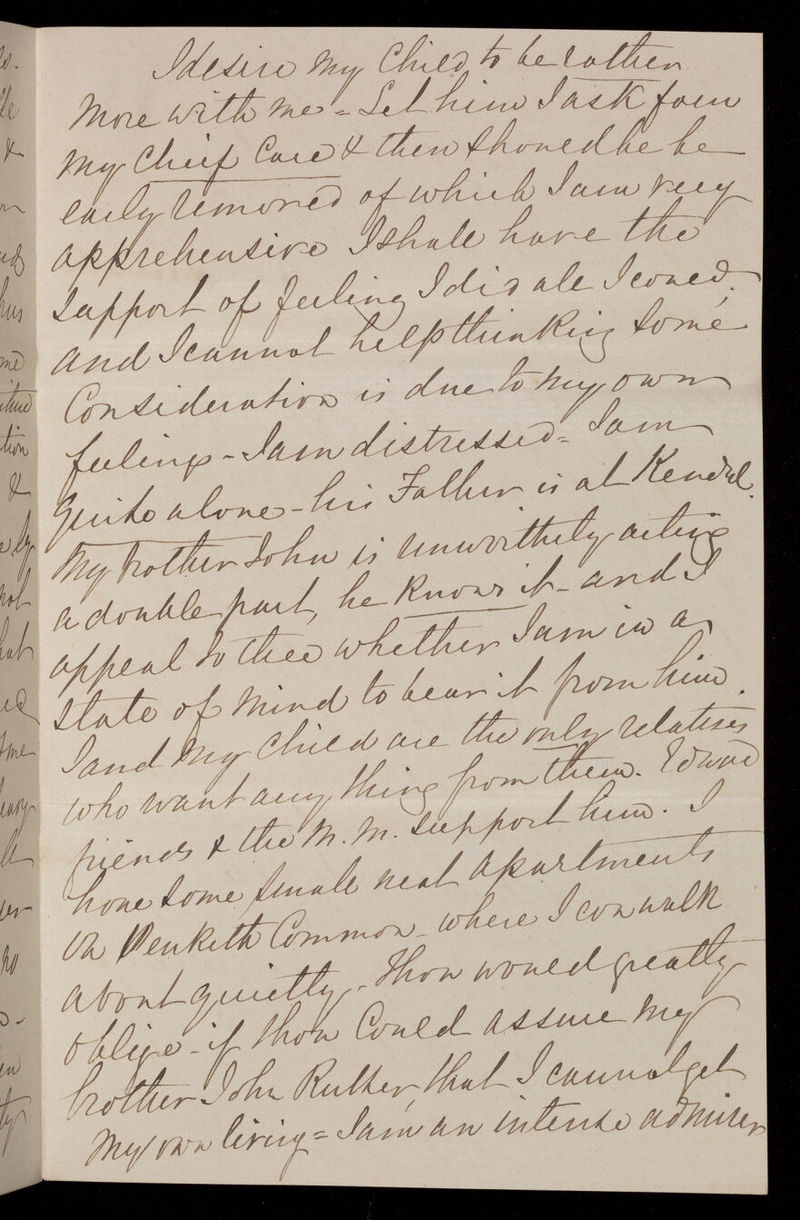 I desire my Child to be rather
more with me = Let him I ask form
my Chief Care & then should he be
early removed of which I am very
apprehensive I shall have the
support of feeling I did all I could.
and I cannot help thinking some
Consideration is due to my own
feelings - I am distressed = I am
quite alone - his Father is at Kendal.
My brother John is unworthily acting
a double part, he knows it - and I
appeal to thee whether I am in a
state of mind to bear it from him.
I and my Child are the only relatives
who want any thing from them. Edward
friends & the M. M. support him. I
have some small neat apartments
on Penketh Common - where I can walk
about quietly. Thou would greatly
oblige - if thou Could assure my
brother John Rutter, that I cannot get
my own living = I am an intense admirer